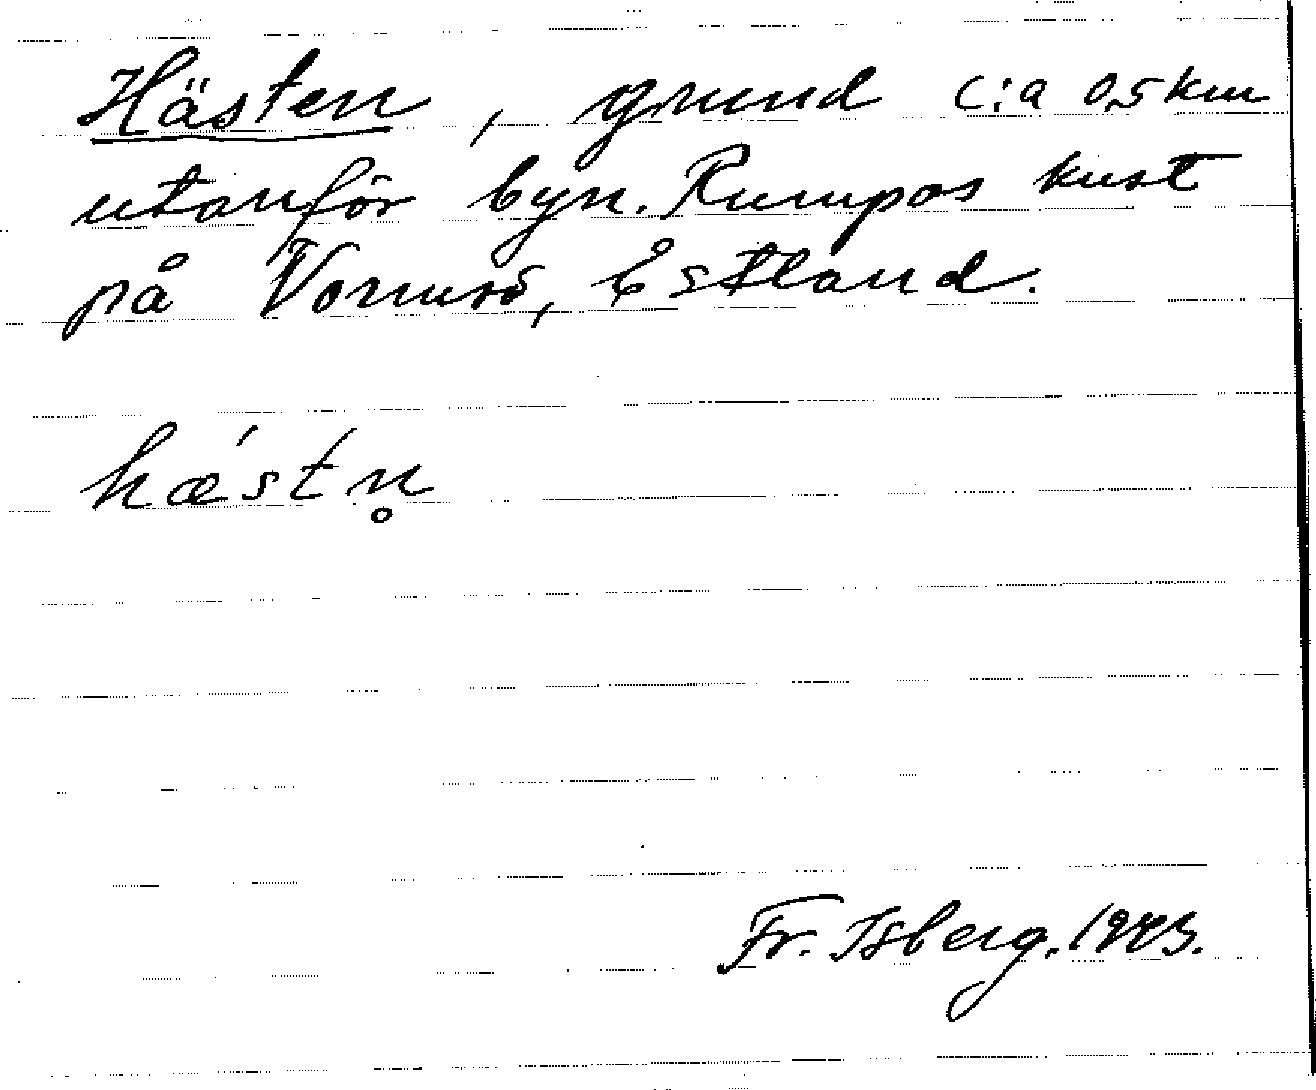 Hästen, grund c:a 0,5 km
utanför byn. Rumpos kust
på Vormsö, Estland.
hæ´stn̥
Fr. Isberg. 1943.